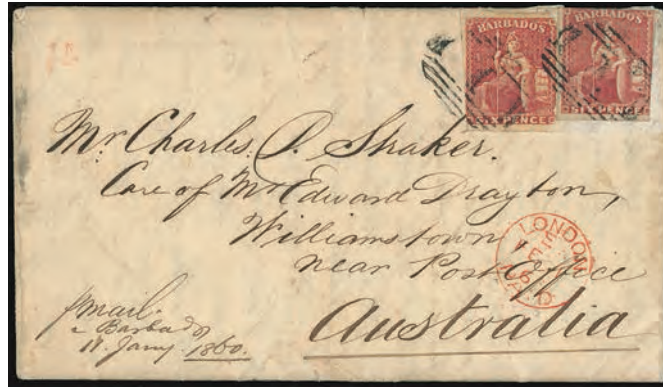 BARBADOS
SIX PENCE
BARBADOS
SIX PENCE
Mr Charles. P. Shaker.
Care of Mr Edward Drayton,
Williamstown
near Post Office
Australia
LONDON
PAID
p mail.
Barbados
Jany. 1860.